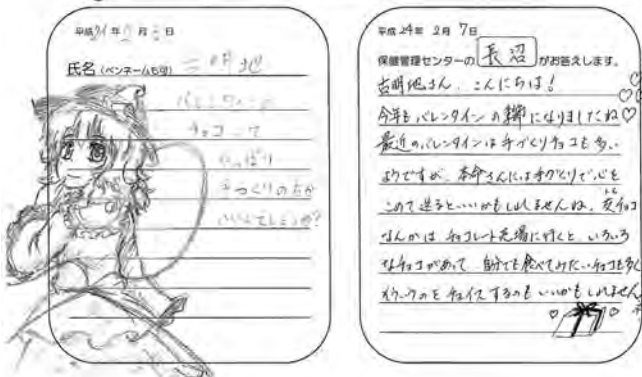 平成24年 月 日
氏名（ペンネームも可）
バレンタインの
チョコって
やっぱり
手づくりの方が
いいんでしょうか?
平成24年 2月 7日
保健管理センターの 長沼 がお答えします。
古明地さん、こんにちは!
今年もバレンタインの季節になりましたね♡
最近のバレンタインは手づくりチョコも多い
ようですが、本命さんには手づくりで、心を
こめて送るといいかもしれませんね。友チョコ
なんかは チョコレート売場に行くと、いろいろ
なチョコがあって、自分でも食べてみたいチョコも多く
をチョイスするのも いいかもしれません